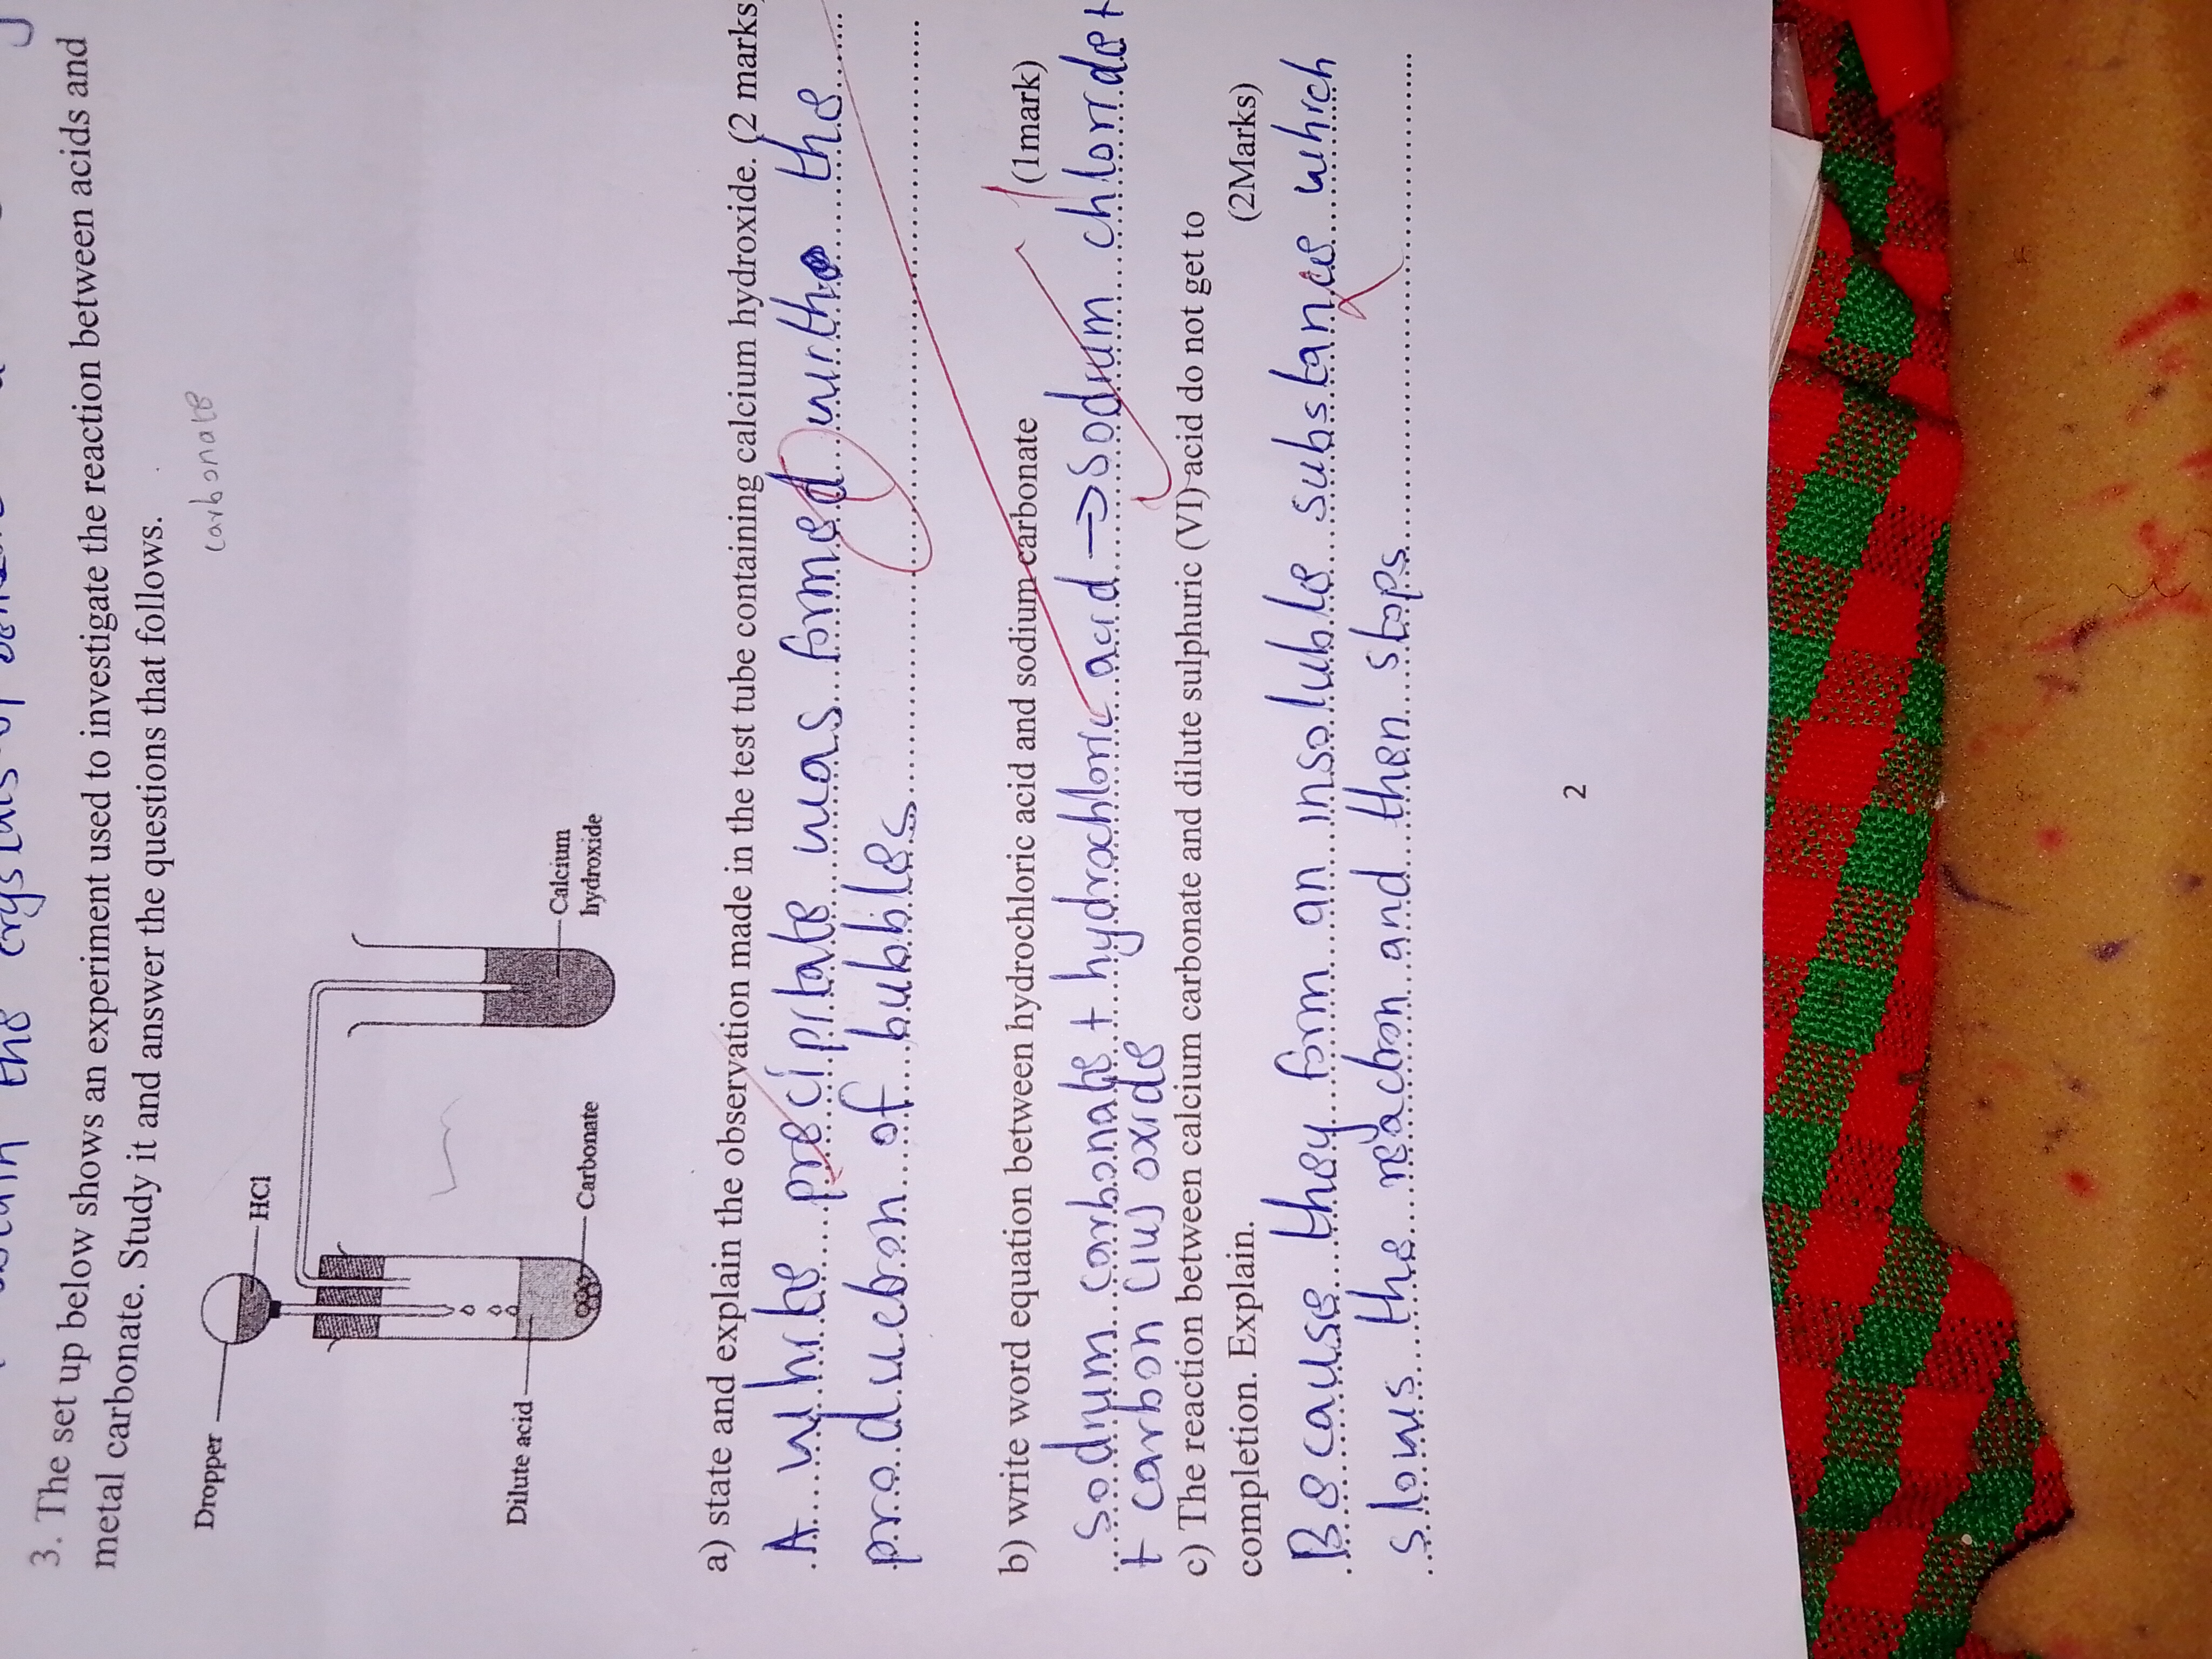 3. The set up below shows an experiment used to investigate the reaction between acids and
metal carbonate. Study it and answer the questions that follows.
carbonate
Dropper
HCl
Dilute acid
Carbonate
Calcium
hydroxide
a) state and explain the observation made in the test tube containing calcium hydroxide. (2 marks
A white precipitate was formed with the
production of bubbles
b) write word equation between hydrochloric acid and sodium carbonate (1mark)
sodium carbonate + hydrochloric acid → sodium chloride +
+ carbon (IV) oxide
c) The reaction between calcium carbonate and dilute sulphuric (VI) acid do not get to
completion. Explain. (2Marks)
Because they form an insoluble substance which
slows the reaction and then stops
2